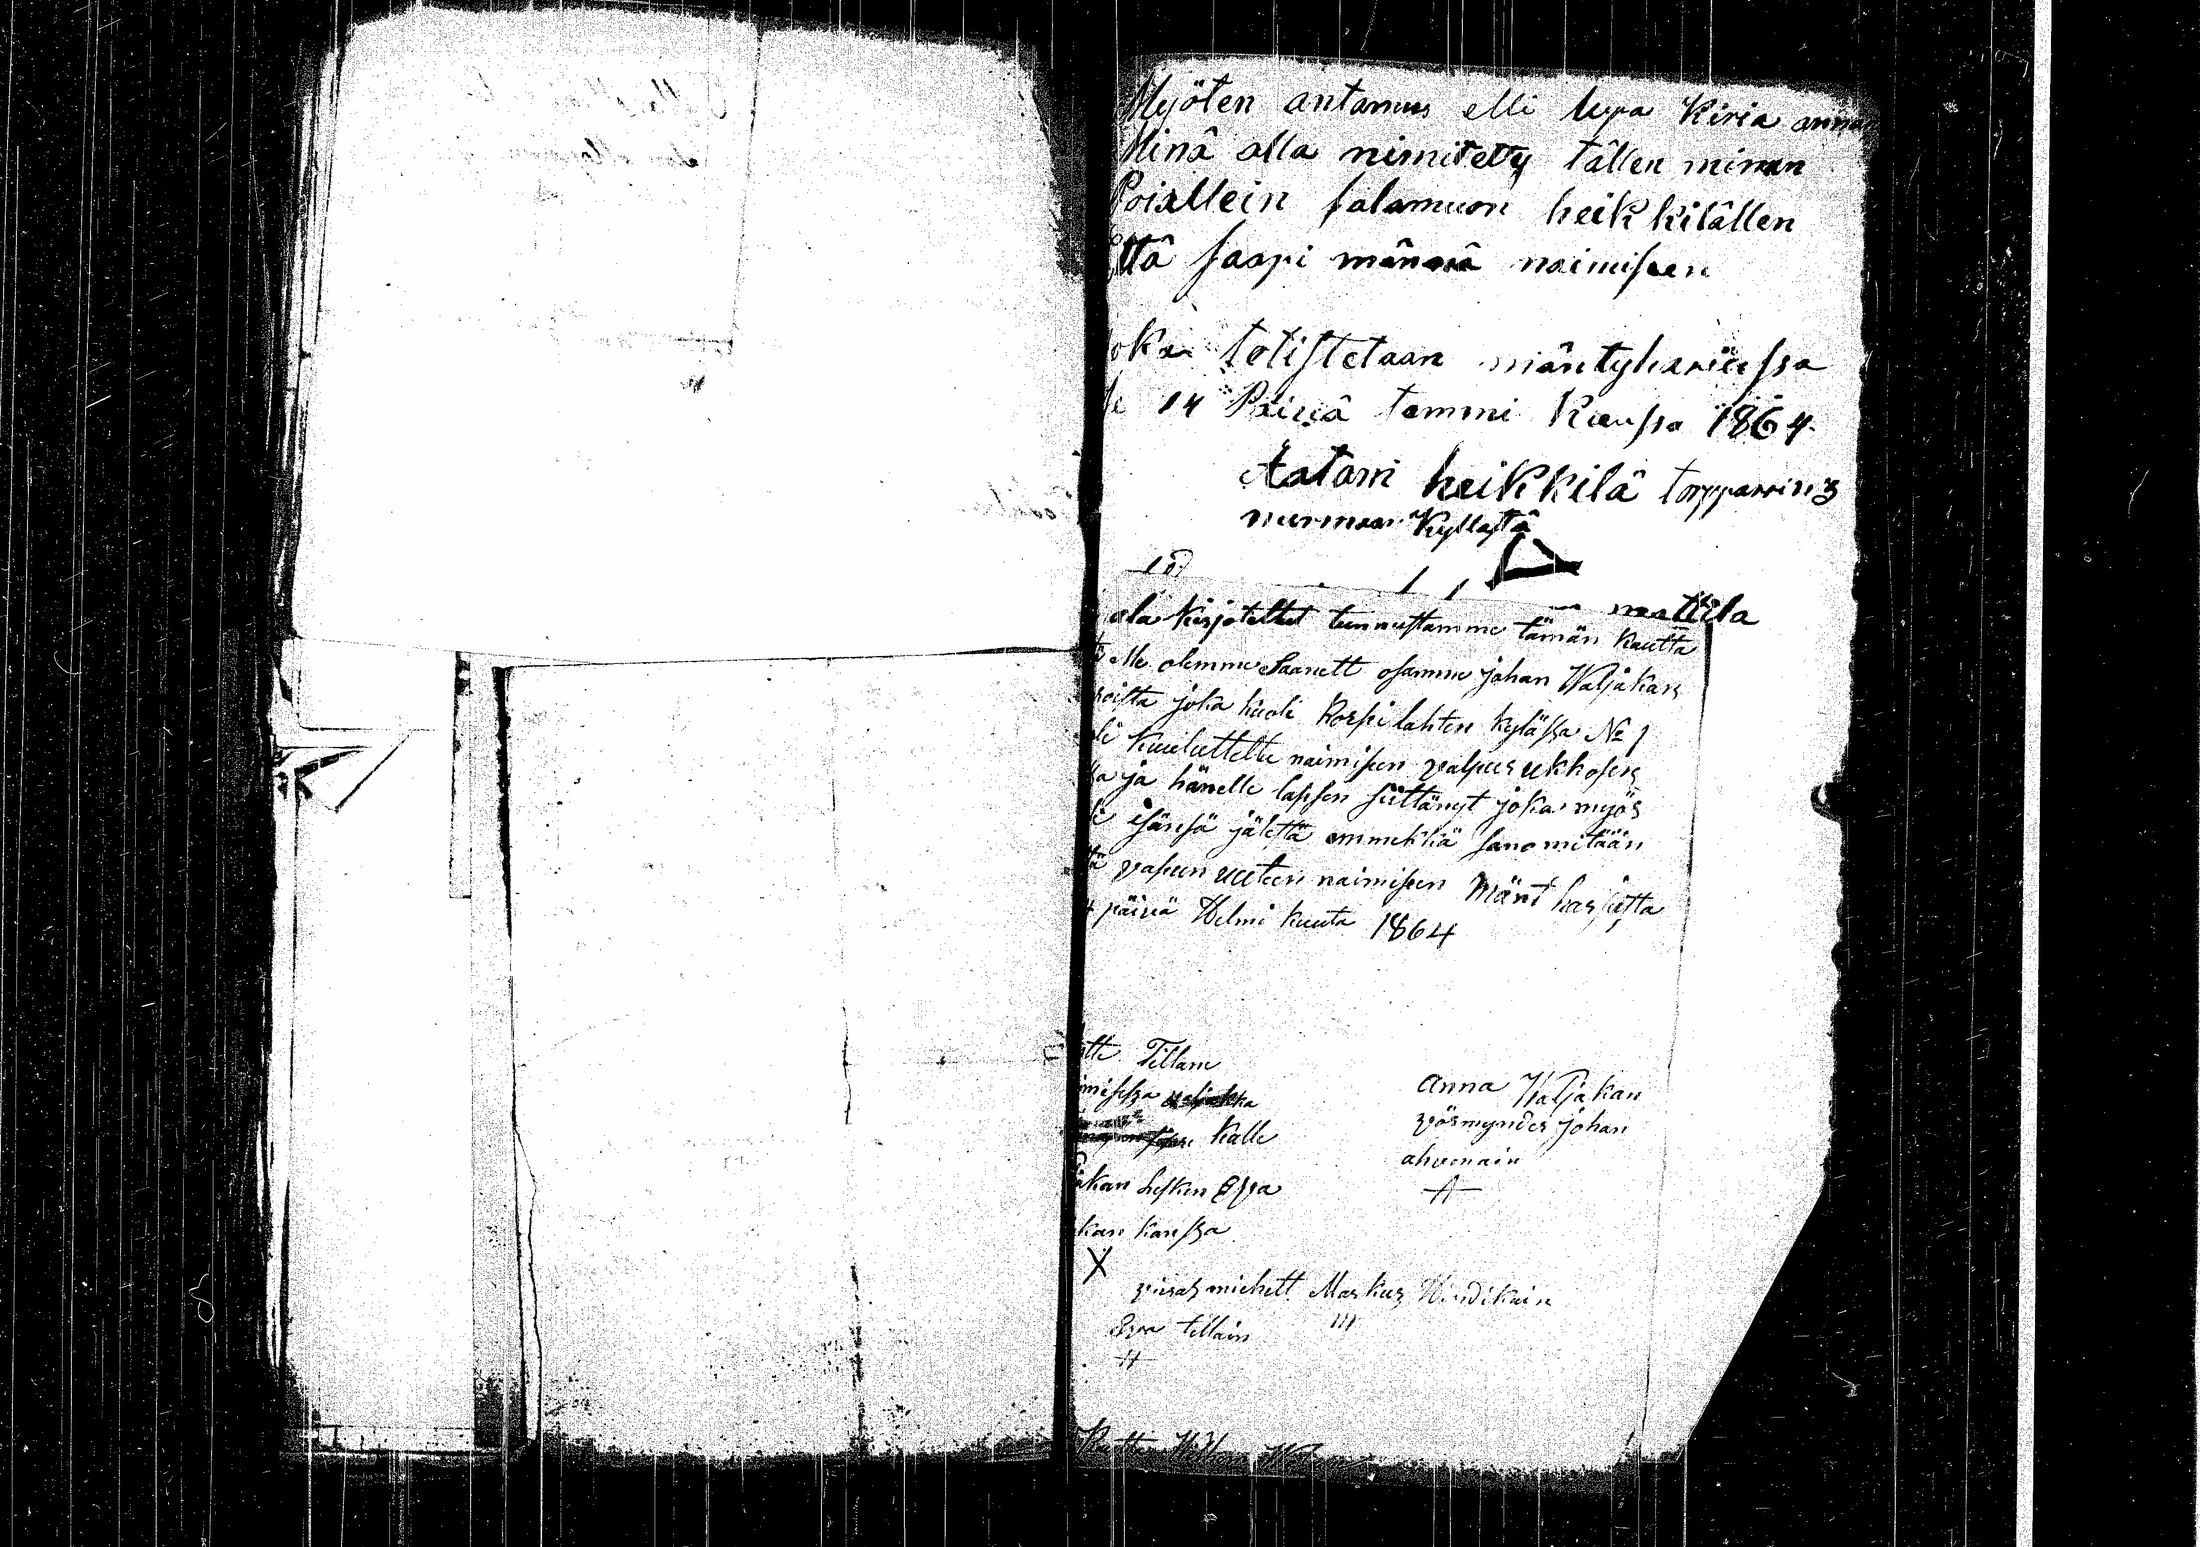 Myöten antamus elli lupa kiria anna
Minä alla nimitetty tällen minun
Poixllein salamuon heikkilällen
Että saapi männä naimiseen
oka totistetaan mäntyhariussa
se 14 Päivä tammi Kuussa 1864
Aatami heikkilä torppari
nurmaan Kyllästä
mattila
ala kirjotettut tunnustamme tämän kautta
Me olemme Saanett osamme johan Waljakan
joka kuoli korpilahten kylässä No 1
kuulutettu naimiseen valpur ukkosen
ja hänelle lapsen siittänyt joka myös
isänsä jälettä emmekkä sano mitään
vapun uuteen naimiseen Mänt harjutta
päivä Helmi kuuta 1864
Tillane
waljakka
Kalle
akan lesken Eva
kan kanssa
X
anna Waljakan
vörmynder johan
ahvenain
vieras miehett Markus
III
Eva tillain